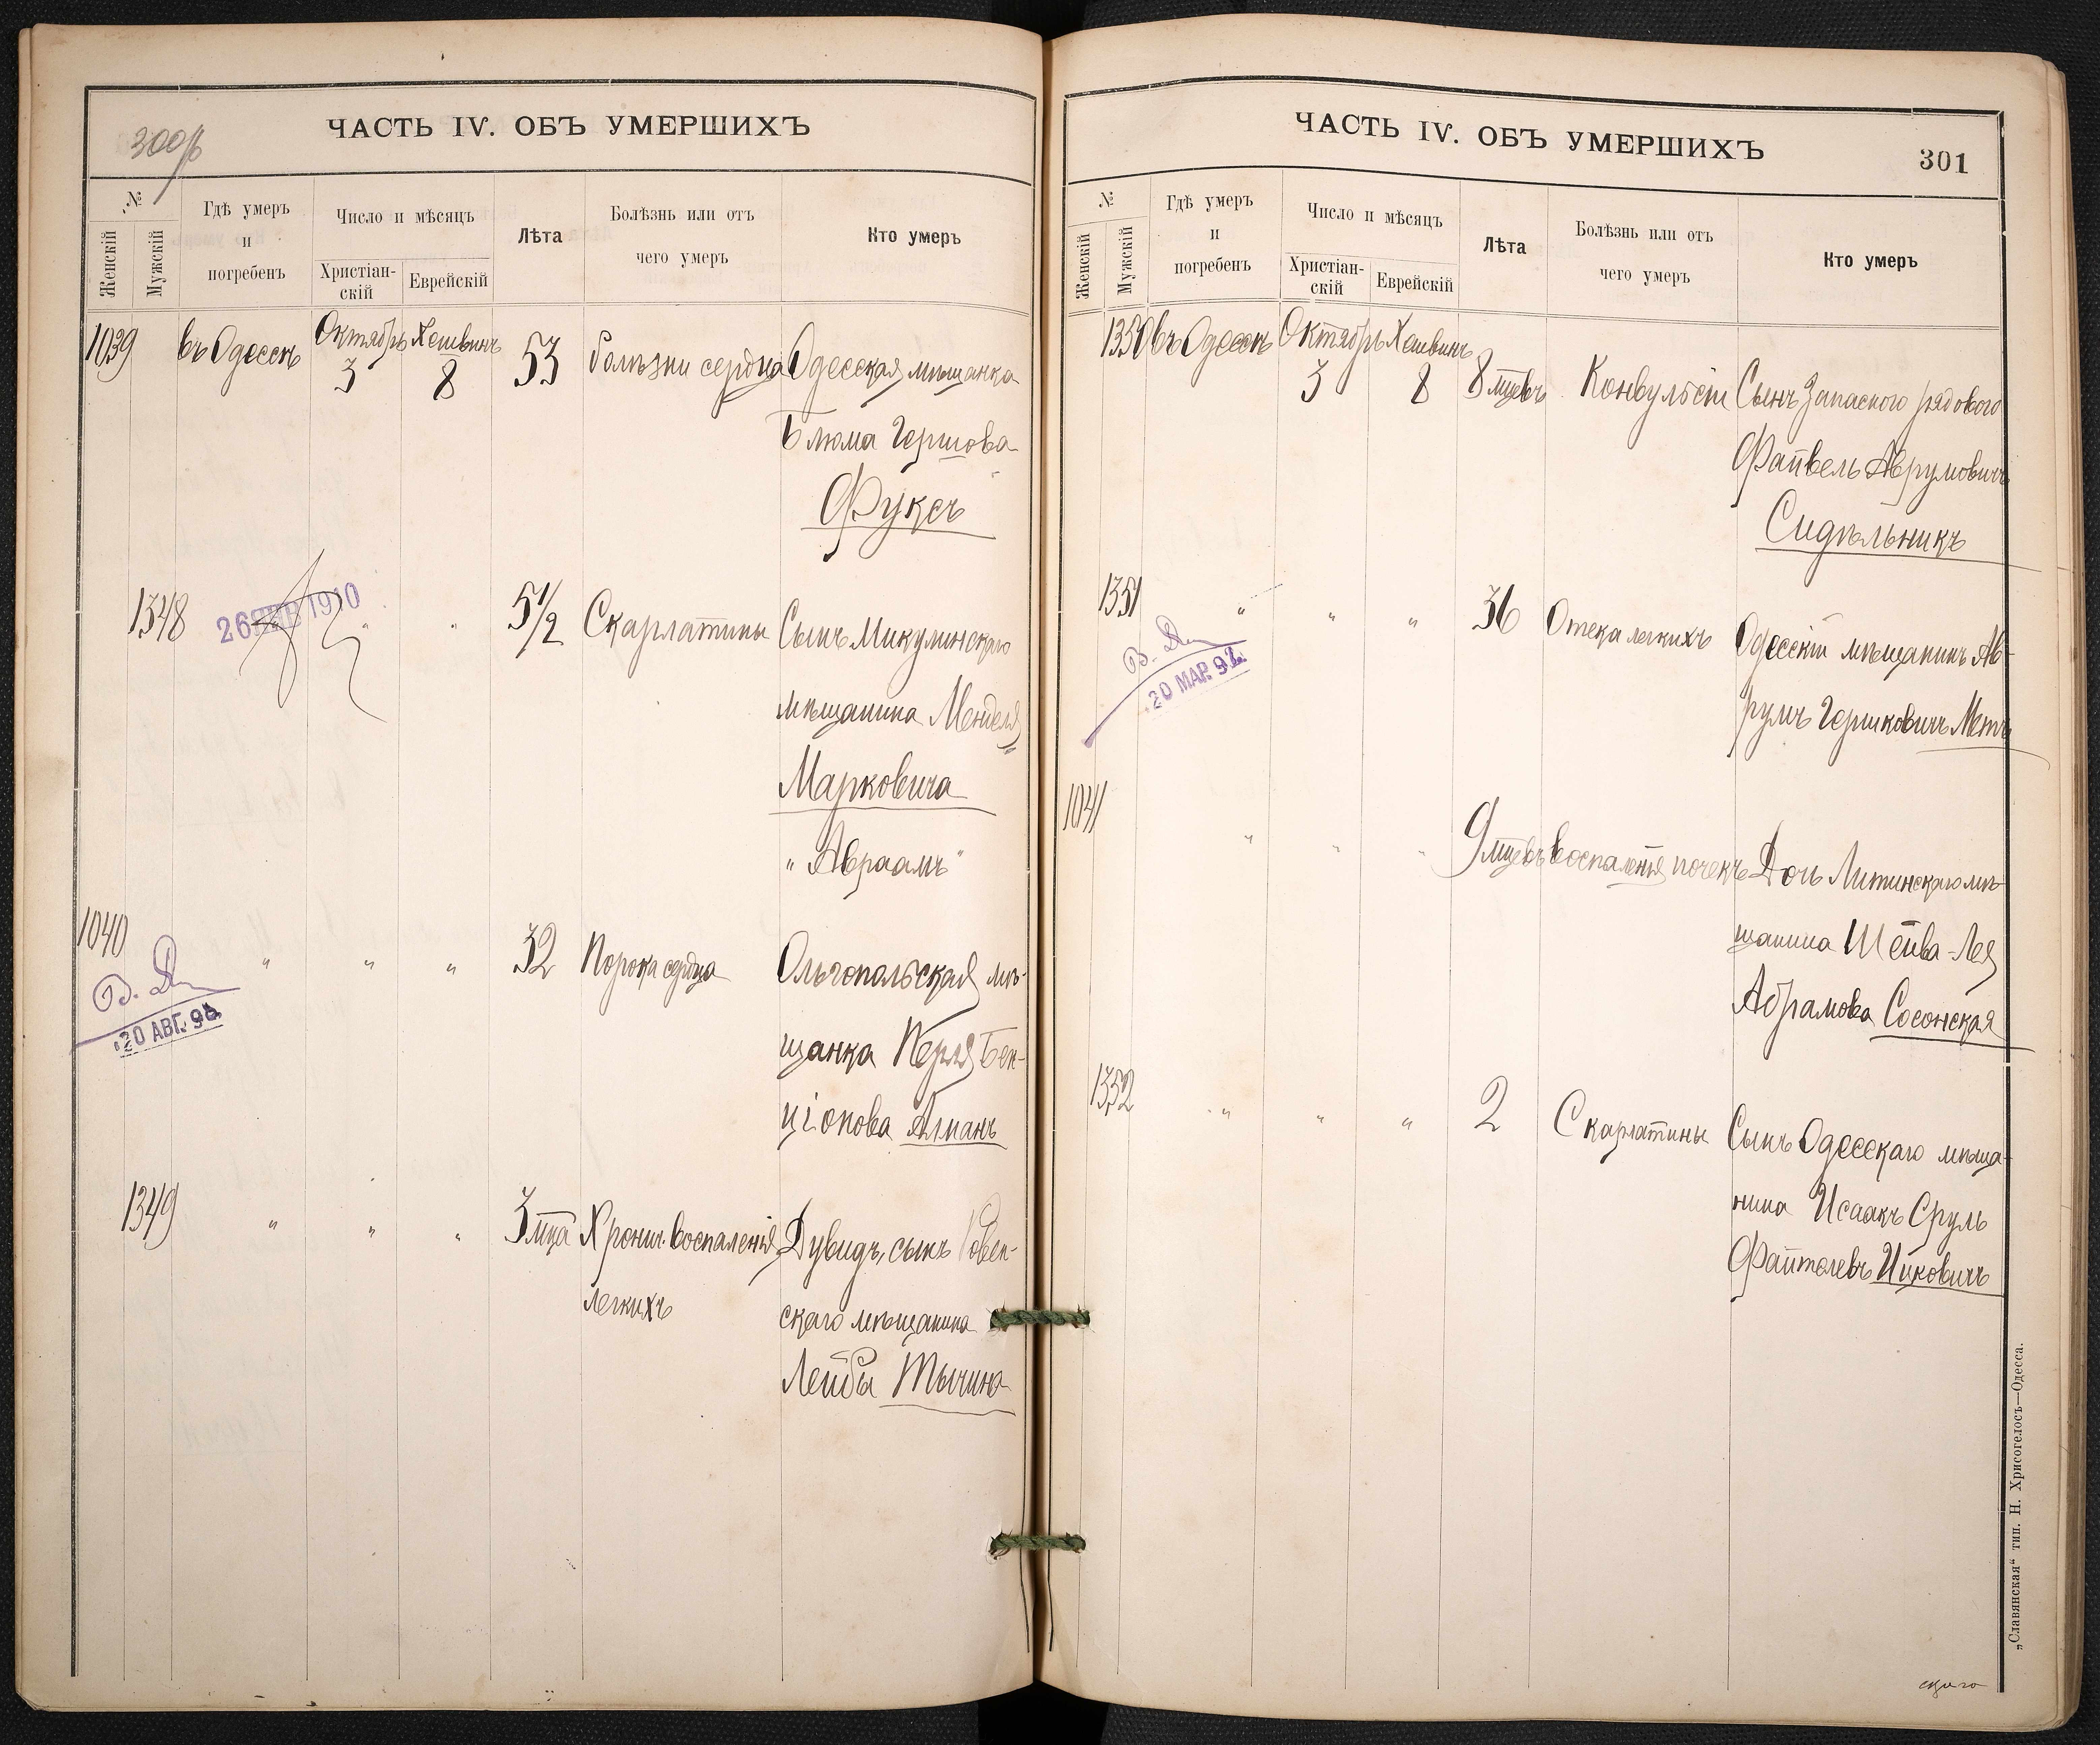 300/б
ЧАСТЬ IV. ОБЪ УМЕРШИХЪ
№
Женскій
Мужскій
Гдѣ умеръ
и
погребенъ
Число и мѣсяцъ
Христіан-
скій
Еврейскій
Лѣта
Болѣзнь или отъ
чего умеръ
Кто умеръ
1039 въ Одессѣ Октябрь 3 Хешвинъ 8 53 болѣзни сердца Одесская мѣщанка
Блюма Гершова
Фуксъ
1348 " " " 5 1/2 Скарлатины Сынъ Микулинскаго
26 ЯНВ 1910
мѣщанина Менделя
Марковича
"Авраамъ"
1040 " " " 32 Порока сердца Ольгопольская мѣ-
20 АВГ. 98
щанка Перля Бен-
ціонова Алманъ
1349 " " " 3 мца Хронич. воспаленія Дувидъ, сынъ Ровен-
легкихъ
скаго мѣщанина
Лейбы Тычина
ЧАСТЬ IV. ОБЪ УМЕРШИХЪ
301
№
Женскій
Мужскій
Гдѣ умеръ
и
погребенъ
Число и мѣсяцъ
Христіан-
скій
Еврейскій
Лѣта
Болѣзнь или отъ
чего умеръ
Кто умеръ
1350 въ Одессѣ Октябрь 3 Хешвинъ 8 8 мцевъ Конвульсіи Сынъ Запасного рядового
Файвель Аврумовичъ
Сидѣльникъ
1351 " " " 36 Отека легкихъ Одесскій мѣщанинъ Ав-
20 МАР. 92
румъ Гершковичъ Метъ
1041 " " " 9 мцевъ воспаленія почекъ Дочь Литинскаго мѣ-
щанина Шейва-Лея
Абрамова Сосонская
1352 " " " 2 Скарлатины Сынъ Одесскаго мѣща-
нина Исаакъ Сруль
Файтелевъ Ицковичъ
„Славянская“ тип. Н. Хрисогелосъ—Одесса.